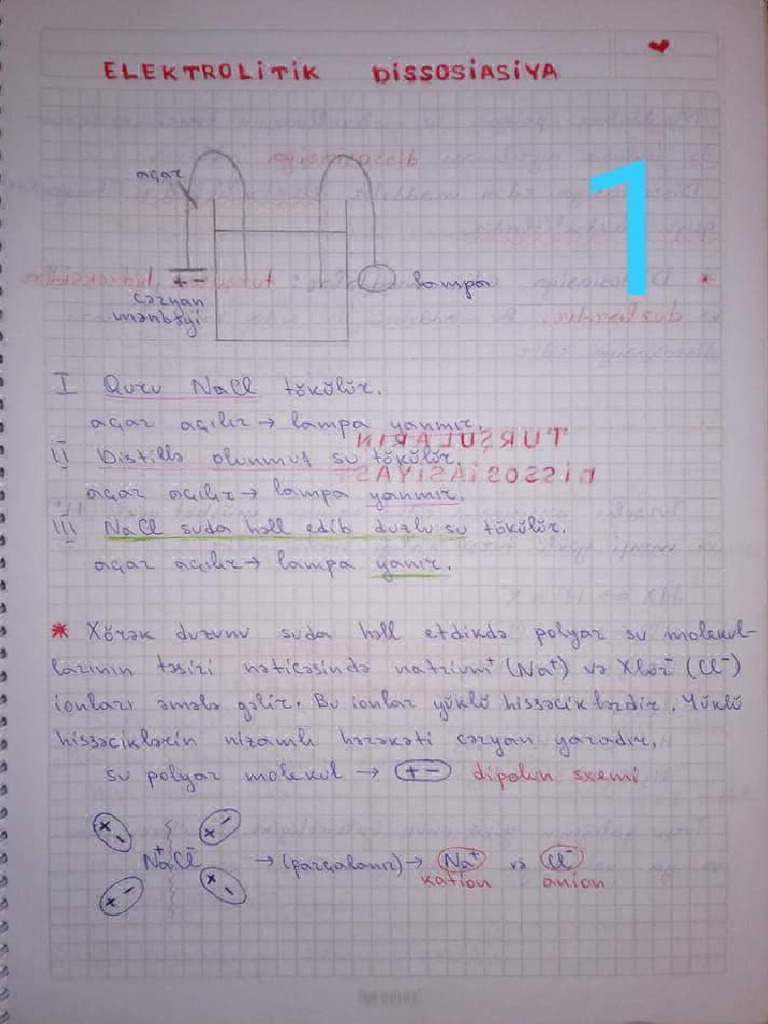 ELEKTROLİTİK DİSSOSİASİYA
1
açar
+ -
lampa
cərəyan
mənbəyi
I Quru NaCl tökülür.
açar açılır → lampa yanmır.
II Distillə olunmuş su tökülür.
açar açılır → lampa yanmır.
III NaCl suda həll edib duzlu su tökülür.
açar açılır → lampa yanır.
* Xörək duzunu suda həll etdikdə polyar su molekul-
larının təsiri nəticəsində natrium⁺ (Na⁺) və Xlor⁻ (Cl⁻)
ionları əmələ gəlir. Bu ionlar yüklü hissəciklərdir. Yüklü
hissəciklərin nizamlı hərəkəti cərəyan yaradır.
su polyar molekul → + - dipolun sxemi
+ - + -
Na⁺Cl⁻ → (parçalanır) → Na⁺ və Cl⁻
kation anion
+ - + -